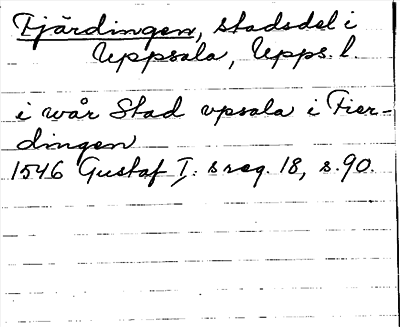 Fjärdingen, stadsdel i
Uppsala, Upps. l.
i wår Stad vpsala i Fier-
dingen
1546 Gustaf I:s reg. 18, s. 90.